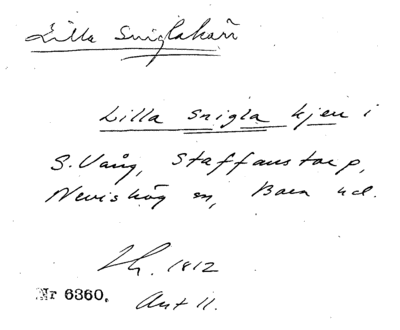 Lilla Sniglahañ
Lilla snigla kjen i
S. Vång, Staffanstorp,
Nevishög sn, Bara hd.
Lh. 1812
Nr 6360. Akt 11.